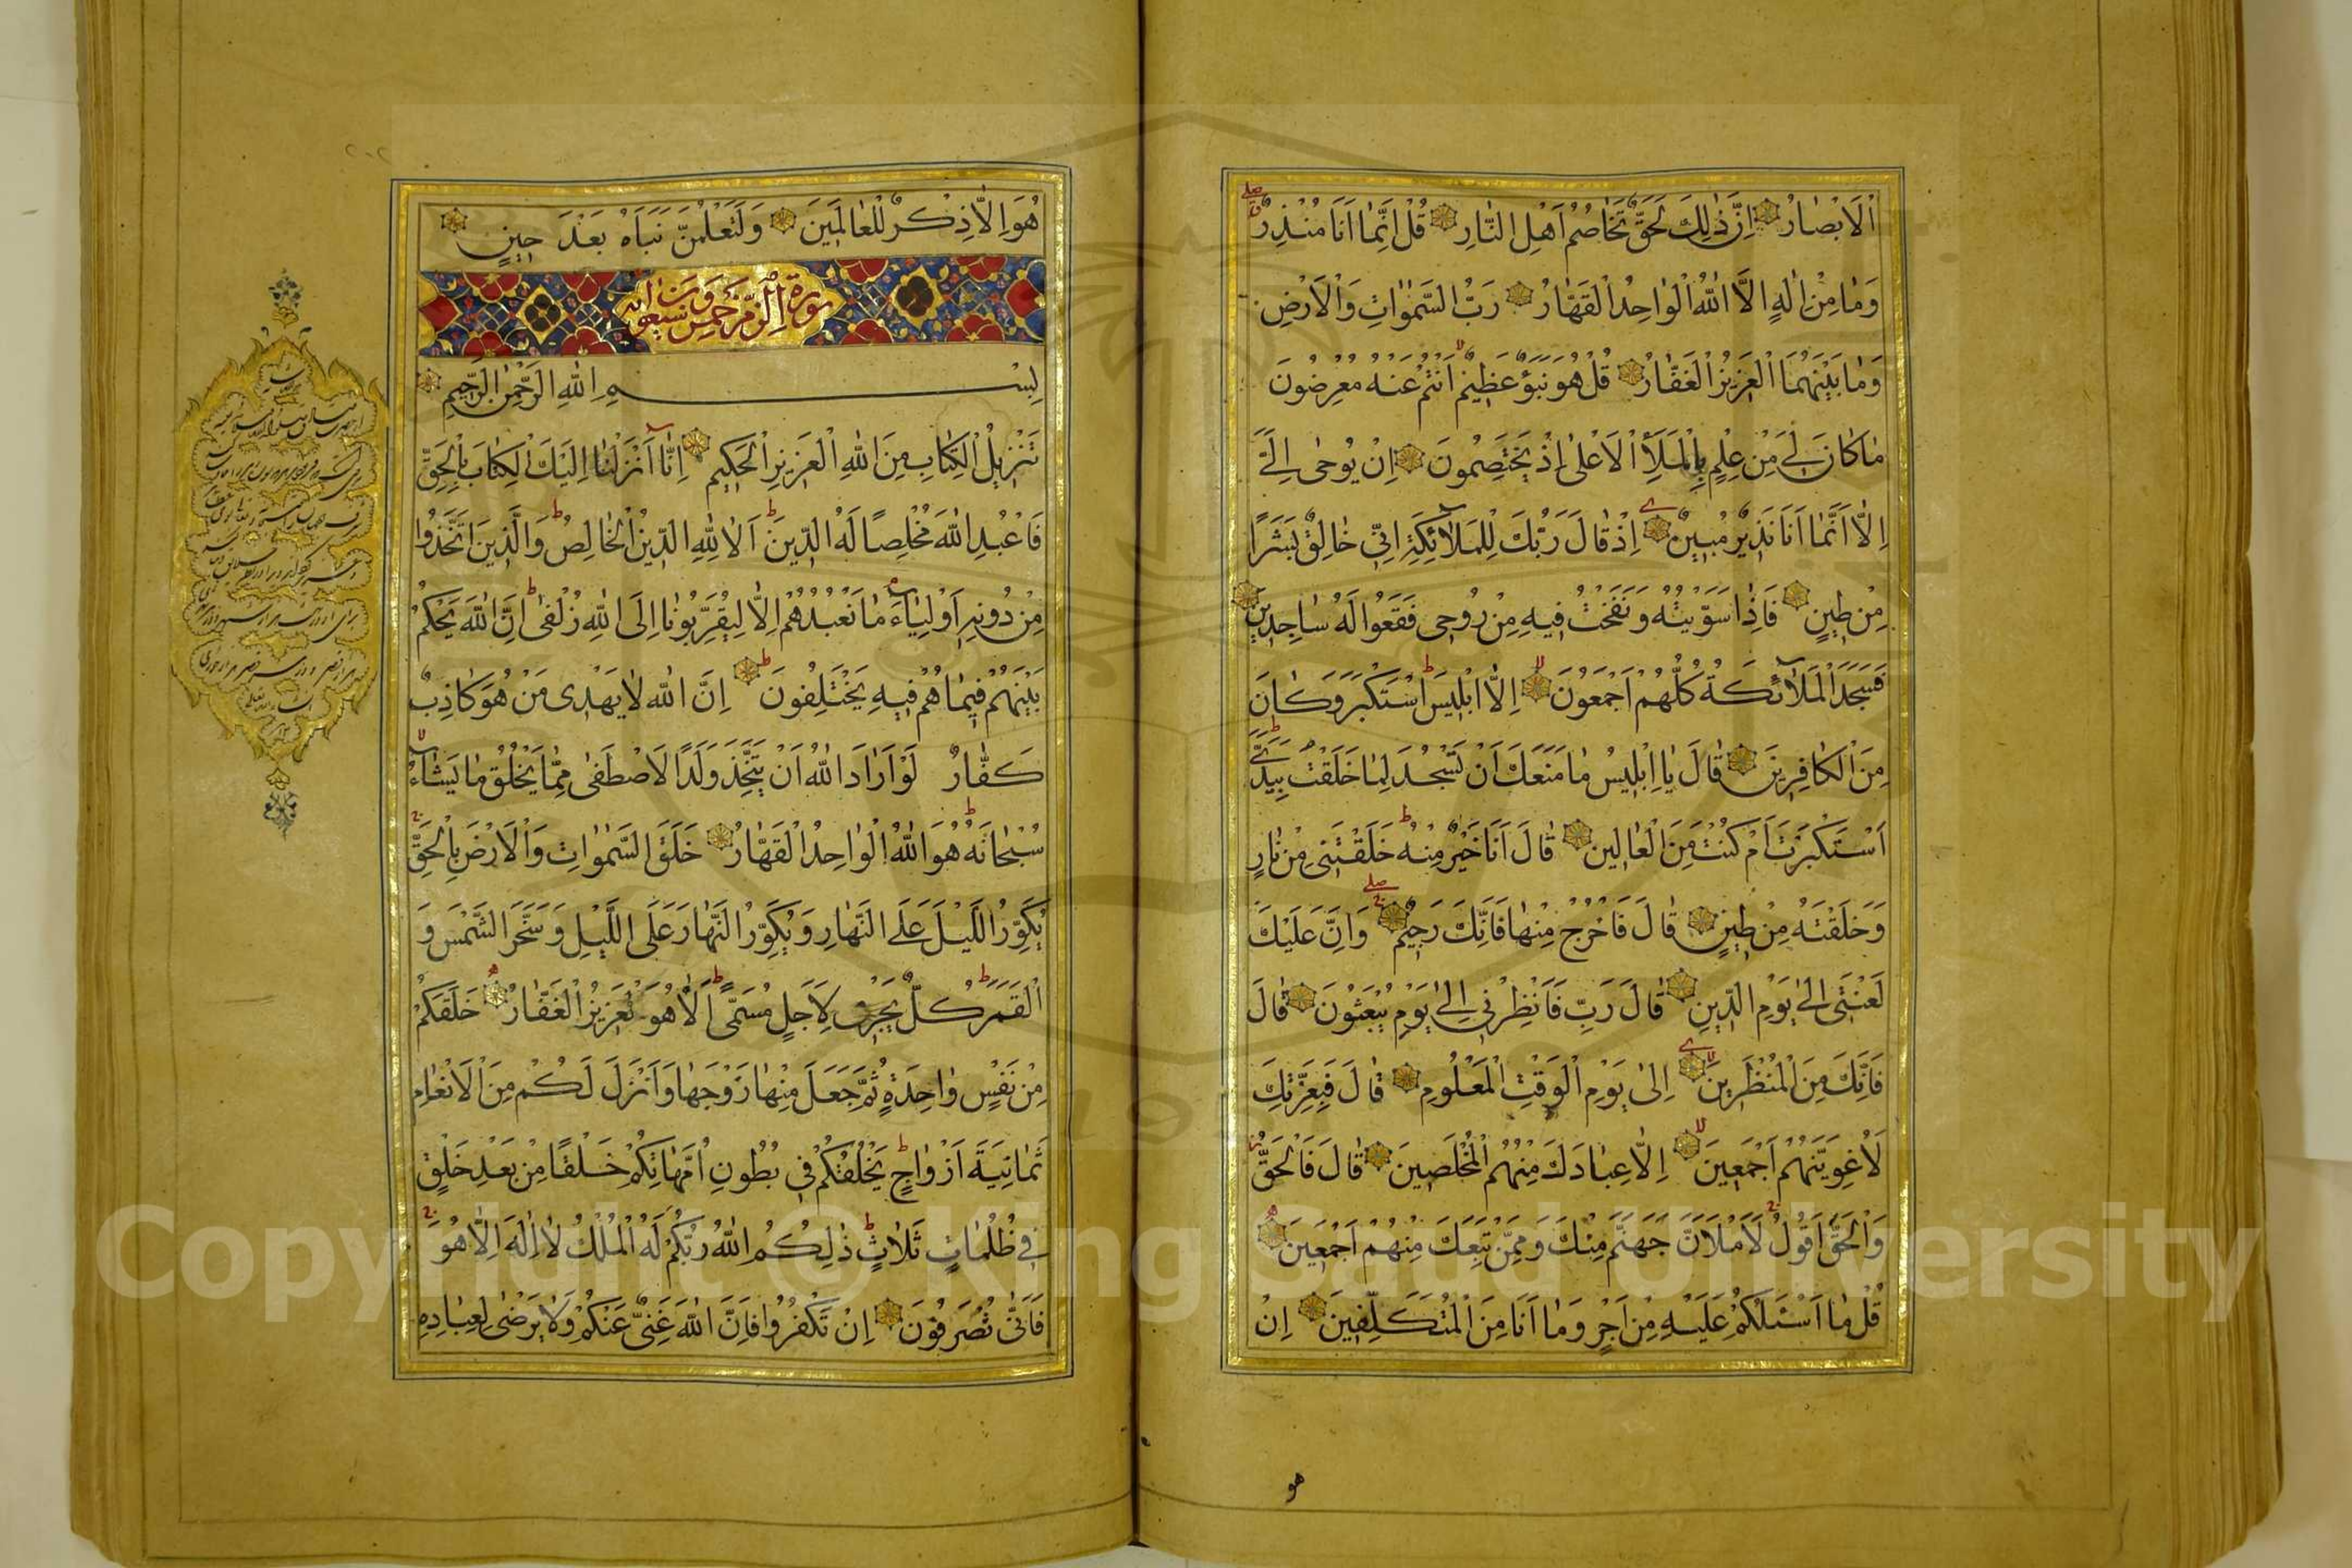 اَلْاَبْصٰارُ اِنَّ ذٰلِكَ لَحَقٌّ تَخٰاصُمُ اَهْلِ النّٰارِ قُلْ اِنَّمٰا اَنَا مُنْذِرٌ
وَمٰا مِنْ اِلٰهٍ اِلَّا اللّٰهُ الْوٰاحِدُ الْقَهّٰارُ رَبُّ السَّمٰوٰاتِ وَالْاَرْضِ
وَمٰا بَيْنَهُمَا الْعَزِيزُ الْغَفّٰارُ قُلْ هُوَ نَبَؤٌ عَظِيمٌ اَنْتُمْ عَنْهُ مُعْرِضُونَ
مٰا كٰانَ لِيَ مِنْ عِلْمٍ بِالْمَلَأِ الْاَعْلٰى اِذْ يَخْتَصِمُونَ اِنْ يُوحٰى اِلَيَّ
اِلّٰا اَنَّمٰا اَنَا نَذِيرٌ مُبِينٌ اِذْ قٰالَ رَبُّكَ لِلْمَلٰائِكَةِ اِنِّي خٰالِقٌ بَشَرًا
مِنْ طِينٍ فَاِذٰا سَوَّيْتُهُ وَنَفَخْتُ فِيهِ مِنْ رُوحِي فَقَعُوا لَهُ سٰاجِدِينَ
فَسَجَدَ الْمَلٰائِكَةُ كُلُّهُمْ اَجْمَعُونَ اِلّٰا اِبْلِيسَ اسْتَكْبَرَ وَكٰانَ
مِنَ الْكٰافِرِينَ قٰالَ يٰا اِبْلِيسُ مٰا مَنَعَكَ اَنْ تَسْجُدَ لِمٰا خَلَقْتُ بِيَدَيَّ
اَسْتَكْبَرْتَ اَمْ كُنْتَ مِنَ الْعٰالِينَ قٰالَ اَنَا خَيْرٌ مِنْهُ خَلَقْتَنِي مِنْ نٰارٍ
وَخَلَقْتَهُ مِنْ طِينٍ قٰالَ فَاخْرُجْ مِنْهٰا فَاِنَّكَ رَجِيمٌ وَاِنَّ عَلَيْكَ
لَعْنَتِي اِلٰى يَوْمِ الدِّينِ قٰالَ رَبِّ فَاَنْظِرْنِي اِلٰى يَوْمِ يُبْعَثُونَ قٰالَ
فَاِنَّكَ مِنَ الْمُنْظَرِينَ اِلٰى يَوْمِ الْوَقْتِ الْمَعْلُومِ قٰالَ فَبِعِزَّتِكَ
لَاُغْوِيَنَّهُمْ اَجْمَعِينَ اِلّٰا عِبٰادَكَ مِنْهُمُ الْمُخْلَصِينَ قٰالَ فَالْحَقُّ
وَالْحَقَّ اَقُولُ لَاَمْلَاَنَّ جَهَنَّمَ مِنْكَ وَمِمَّنْ تَبِعَكَ مِنْهُمْ اَجْمَعِينَ
قُلْ مٰا اَسْئَلُكُمْ عَلَيْهِ مِنْ اَجْرٍ وَمٰا اَنَا مِنَ الْمُتَكَلِّفِينَ اِنْ
هو
هُوَ اِلّٰا ذِكْرٌ لِلْعٰالَمِينَ وَلَتَعْلَمُنَّ نَبَاَهُ بَعْدَ حِينٍ
سورة الزمر خمس وسبعون اية
بِسْمِ اللّٰهِ الرَّحْمٰنِ الرَّحِيمِ
تَنْزِيلُ الْكِتٰابِ مِنَ اللّٰهِ الْعَزِيزِ الْحَكِيمِ اِنّٰا اَنْزَلْنٰا اِلَيْكَ الْكِتٰابَ بِالْحَقِّ
فَاعْبُدِ اللّٰهَ مُخْلِصًا لَهُ الدِّينَ اَلٰا لِلّٰهِ الدِّينُ الْخٰالِصُ وَالَّذِينَ اتَّخَذُوا
مِنْ دُونِهِ اَوْلِيٰاءَ مٰا نَعْبُدُهُمْ اِلّٰا لِيُقَرِّبُونٰا اِلَى اللّٰهِ زُلْفٰى اِنَّ اللّٰهَ يَحْكُمُ
بَيْنَهُمْ فِيمٰا هُمْ فِيهِ يَخْتَلِفُونَ اِنَّ اللّٰهَ لٰا يَهْدِي مَنْ هُوَ كٰاذِبٌ
كَفّٰارٌ لَوْ اَرٰادَ اللّٰهُ اَنْ يَتَّخِذَ وَلَدًا لَاصْطَفٰى مِمّٰا يَخْلُقُ مٰا يَشٰاءُ
سُبْحٰانَهُ هُوَ اللّٰهُ الْوٰاحِدُ الْقَهّٰارُ خَلَقَ السَّمٰوٰاتِ وَالْاَرْضَ بِالْحَقِّ
يُكَوِّرُ اللَّيْلَ عَلَى النَّهٰارِ وَيُكَوِّرُ النَّهٰارَ عَلَى اللَّيْلِ وَسَخَّرَ الشَّمْسَ وَ
الْقَمَرَ كُلٌّ يَجْرِي لِاَجَلٍ مُسَمًّى اَلٰا هُوَ الْعَزِيزُ الْغَفّٰارُ خَلَقَكُمْ
مِنْ نَفْسٍ وٰاحِدَةٍ ثُمَّ جَعَلَ مِنْهٰا زَوْجَهٰا وَاَنْزَلَ لَكُمْ مِنَ الْاَنْعٰامِ
ثَمٰانِيَةَ اَزْوٰاجٍ يَخْلُقُكُمْ فِي بُطُونِ اُمَّهٰاتِكُمْ خَلْقًا مِنْ بَعْدِ خَلْقٍ
فِي ظُلُمٰاتٍ ثَلٰاثٍ ذٰلِكُمُ اللّٰهُ رَبُّكُمْ لَهُ الْمُلْكُ لٰا اِلٰهَ اِلّٰا هُوَ
فَاَنّٰى تُصْرَفُونَ اِنْ تَكْفُرُوا فَاِنَّ اللّٰهَ غَنِيٌّ عَنْكُمْ وَلٰا يَرْضٰى لِعِبٰادِهِ
Copyright © King Saud University